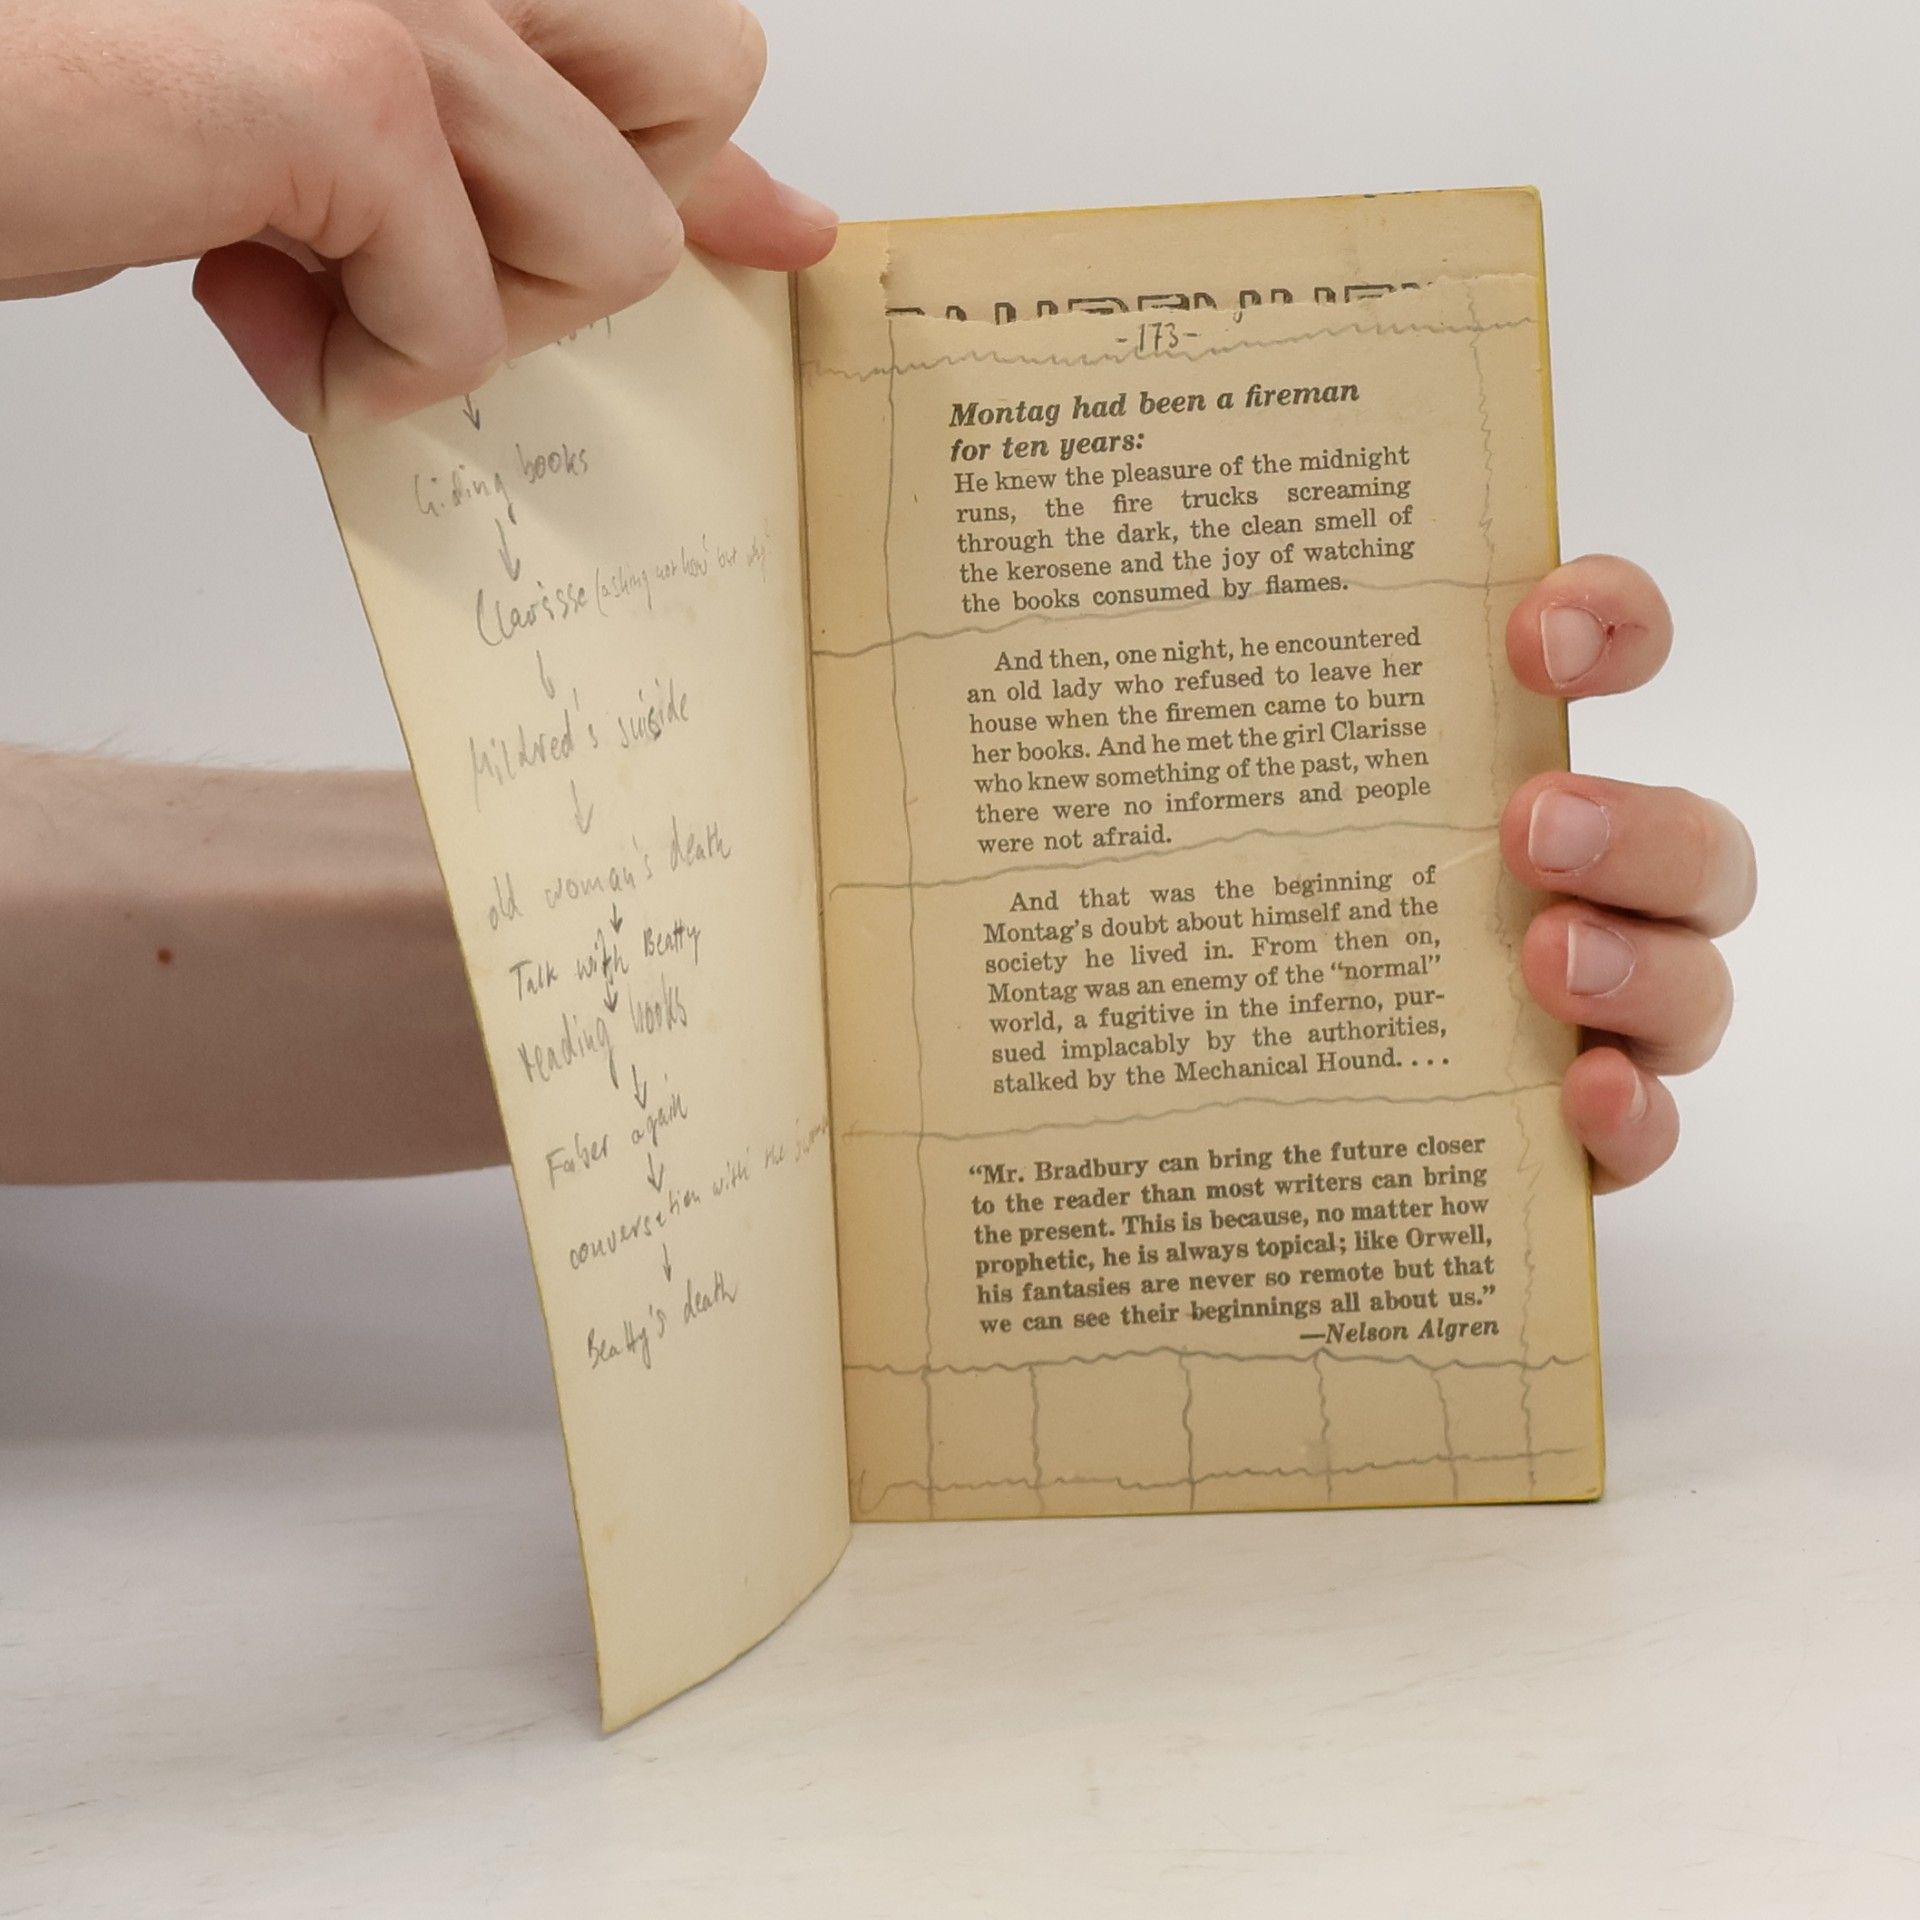 hiding books
Clarisse (asking not 'how' but 'why'
Mildred's suicide
old woman's death
Talk with Beatty
reading books
Faber again
conversation with the
Beatty's death
-173-
Montag had been a fireman
for ten years:
He knew the pleasure of the midnight
runs, the fire trucks screaming
through the dark, the clean smell of
the kerosene and the joy of watching
the books consumed by flames.
And then, one night, he encountered
an old lady who refused to leave her
house when the firemen came to burn
her books. And he met the girl Clarisse
who knew something of the past, when
there were no informers and people
were not afraid.
And that was the beginning of
Montag's doubt about himself and the
society he lived in. From then on,
Montag was an enemy of the “normal”
world, a fugitive in the inferno, pur-
sued implacably by the authorities,
stalked by the Mechanical Hound. . . .
“Mr. Bradbury can bring the future closer
to the reader than most writers can bring
the present. This is because, no matter how
prophetic, he is always topical; like Orwell,
his fantasies are never so remote but that
we can see their beginnings all about us.”
—Nelson Algren